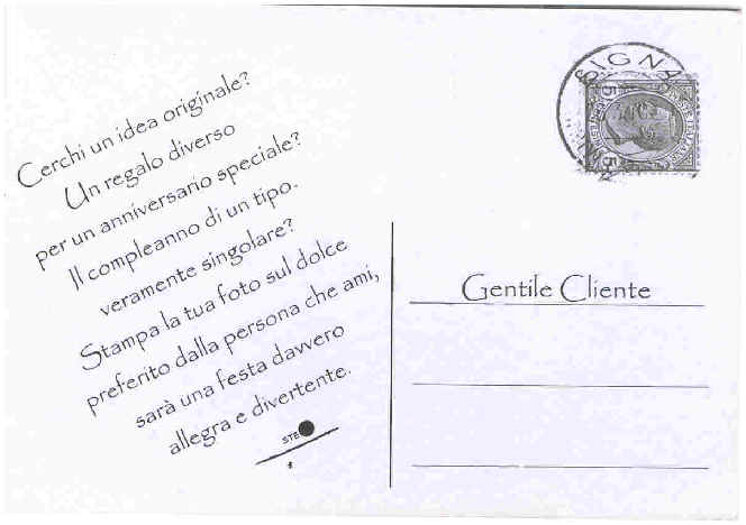 Cerchi un idea originale?
Un regalo diverso
per un anniversario speciale?
Il compleanno di un tipo.
veramente singolare?
Stampa la tua foto sul dolce
preferito dalla persona che ami,
sarà una festa davvero
allegra e divertente.
STE
SIGNA
5 5
Gentile Cliente